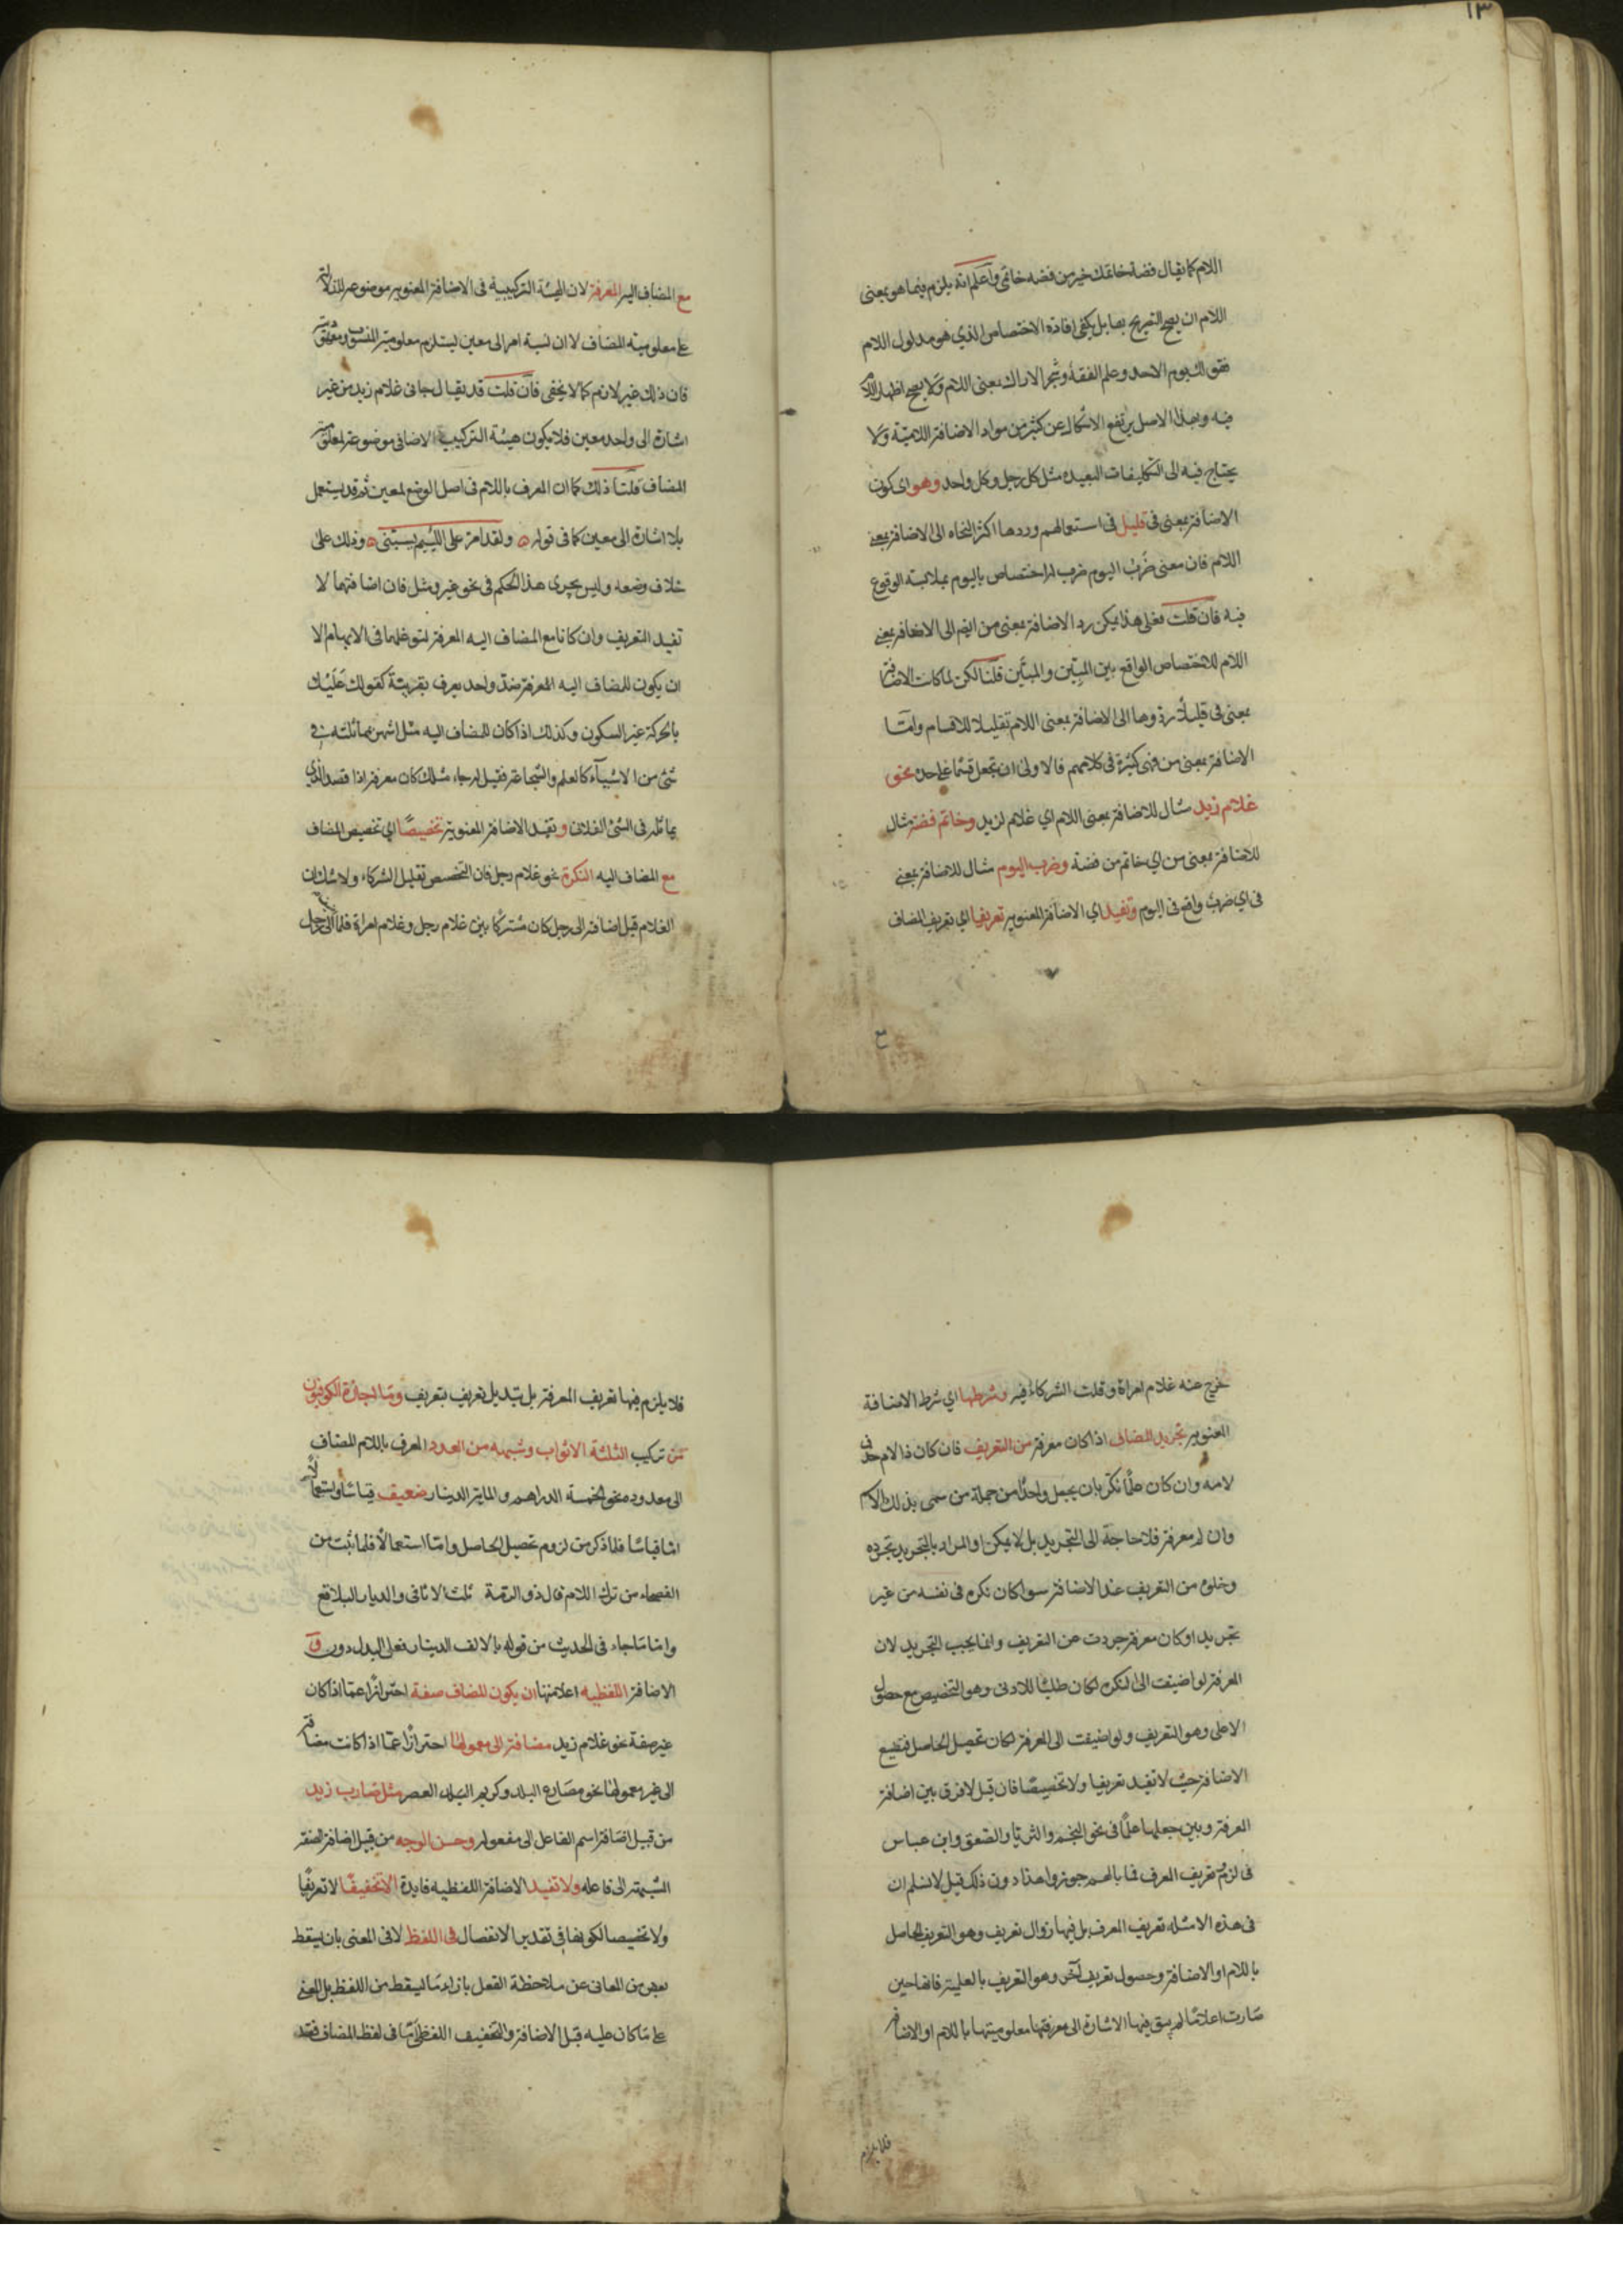 ١٣
اللام كما يقال فضة خاتمك خير من فضه خاتمى واعلم انه يلزم فيما هو بمعنى
اللام ان يصح التصريح بها بل يكفى افادة الاختصاص الذي هو مدلول اللام
فقولك يوم الاحد وعلم الفقه وشجر الاراك بمعنى اللام ولا يصح اظهار اللام
فيه وبهذا الاصل يرتفع الاشكال عن كثير من مواد الاضافة اللامية ولا
يحتاج فيه الى التكليفات البعيده مثل كل رجل وكل واحد وهو اى كون
الاضافة بمعنى فى قليل فى استعمالهم وردها اكثر النحاه الى الاضافة بمعنى
اللام فان معنى ضرب اليوم ضرب له اختصاص باليوم بملابسة الوقوع
فيه فان قلت فعلى هذا يمكن رد الاضافة بمعنى من ايضا الى الاضافة بمعنى
اللام للاختصاص الواقع بين المبيّن والمبيّن قلنا لكن لما كانت الاضافة
بمعنى فى قليلا ردوها الى الاضافة بمعنى اللام تقليلا للاقسام واما
الاضافة بمعنى من فهى كثيرة فى كلامهم فالاولى ان تجعل قسما على حدة نحو
غلام زيد مثال للاضافة بمعنى اللام اي غلام لزيد وخاتم فضة مثال
للاضافة بمعنى من اي خاتم من فضة وضرب اليوم مثال للاضافة بمعنى
فى اي ضرب واقع فى اليوم وتفيد اي الاضافة المعنوية تعريفا اي تعريف المضاف
مع المضاف اليه المعرفة لان الهيئة التركيبية فى الاضافة المعنوية موضوعة للدلالة
على معلومية المضاف لا ان نسبة امر الى معين يستلزم معلومية المنسوب ومعهوديته
فان ذلك غير لازم كما لا يخفى فان قلت قد يقال جانى غلام زيد من غير
اشارة الى واحد معين فلا يكون هيئة التركيب الاضافى موضوعة لمعلومية
المضاف قلنا ذلك كما ان المعرف باللام فى اصل الوضع لمعين ثم قد يستعمل
بلا اشارة الى معين كما فى قوله ولقد امر على اللئيم يسبنى وذلك على
خلاف وضعه وليس يجرى هذا الحكم فى نحو غير ومثل فان اضافتهما لا
تفيد التعريف وان كانا مع المضاف اليه المعرفة لتوغلهما فى الابهام الا
ان يكون للمضاف اليه المعرفة ضد واحد يعرف بقريبة كقولك عليك
بالحركة غير السكون وكذلك اذا كان للمضاف اليه مثل اشتهر بمماثلته فى
شئ من الاشياء كالعلم والشجاعة فقيل له جاء مثلك كان معرفة اذا قصد الذي
يماثله فى الشئ الفلانى وتفيد الاضافة المعنوية تخصيصا اي تخصيص المضاف
مع المضاف اليه النكرة نحو غلام رجل فان التخصيص تقليل الشركاء ولا شك ان
الغلام قبل اضافته الى رجل كان مشتركا بين غلام رجل وغلام امراة فلما الى رجل
خرج عنه غلام امراة وقلت الشركاء فيه وشرطها اي شرط الاضافة
المعنوية تجريد المضاف اذا كان معرفة من التعريف فان كان ذا لام حذف
لامه وان كان علما نكر بان يجعل واحدا من جملة من سمى بذلك الاسم
وان لم معرفة فلا حاجة الى التجريد بل لا يمكن او المراد بالتجريد تجرده
وخلوه من التعريف عند الاضافة سوا كان نكرة فى نفسه من غير
تجريد او كان معرفة جردت عن التعريف وانما يجب التجريد لان
المعرفة لو اضيفت الى النكرة لكان طلبا للادنى وهو التخصيص مع حصول
الاعلى وهو التعريف ولو اضيفت الى المعرفة لكان تحصيل الحاصل فتضيع
الاضافة حيث لا تفيد تعريفا ولا تخصيصا فان قيل لا فرق بين اضافة
المعرفة وبين جعلها علما فى نحو النجم والثريا والصعق وابن عباس
فى لزوم تعريف المعرف فما بالهم جوزوا هذا دون ذلك قيل لا نسلم ان
فى هذه الامثلة تعريف المعرف بل فيها زوال تعريف وهو التعريف الحاصل
باللام او الاضافة وحصول تعريف آخر وهو التعريف بالعلمية فانها حين
صارت اعلاما لم يبق فيها الاشارة الى معرفتها معلوميتها باللام او الاضافة
فلا يلزم
فلا يلزم فيها تعريف المعرفة بل تبديل تعريف بتعريف وما اجازه الكوفيون
من تركيب الثلثة الاثواب وشبهه من العدود المعرف باللام المضاف
الى معدوده نحو الخمسة الدراهم والماية الدينار ضعيف قياسا واستعمالا
اما قياسا فلما ذكر من لزوم تحصيل الحاصل واما استعمالا فلما ثبت من
الفصحاء من ترك اللام قال ذو الرمة ثلث الاثافى والديار البلاقع
واما ما جاء فى الحديث من قوله بالالف الدينار فعلى البدل دون
الاضافة اللفظيه اعلامتها ان يكون المضاف صفة احترازا عما اذا كان
غير صفة نحو غلام زيد مضافة الى معمولها احترازا عما اذا كانت مضافة
الى غير معمولها نحو مصارع البلد وكريم العصر مثل ضارب زيد
من قبيل اضافة اسم الفاعل الى مفعوله وحسن الوجه من قبيل اضافة الصفة
المشبهة الى فاعله ولا تفيد الاضافة اللفظيه فايدة الا تخفيفا لا تعريفا
ولا تخصيصا لكونها فى تقدير الانفصال فى اللفظ لا فى المعنى بان يسقط
بعض من المعانى عن ملاحظة العقل بازاء ما يسقط من اللفظ بل المعنى
على ما كان عليه قبل الاضافة والتخفيف اللفظى اما فى لفظ المضاف فقط